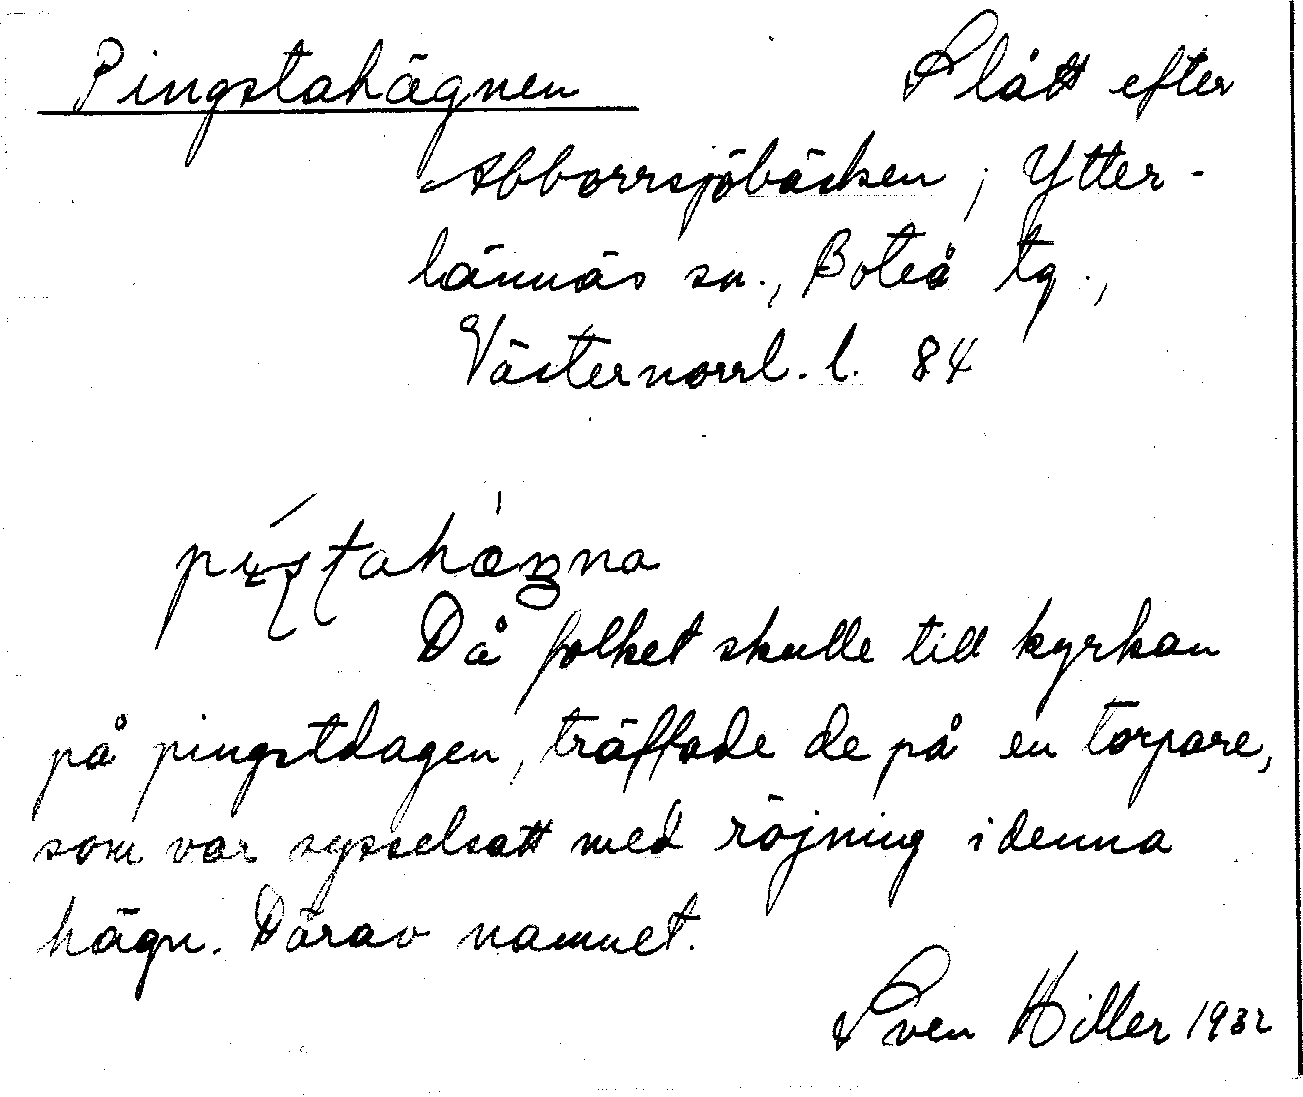 Pingstahägnen Slått efter
Abborrsjöbäcken, Ytter-
lännäs sn., Boteå tg.,
Västernorrl. l. 84
Då folket skulle till kyrkan
på pingstdagen, träffade de på en torpare,
som var sysselsatt med röjning i denna
hägn. Därav namnet.
Sven Hiller 1932